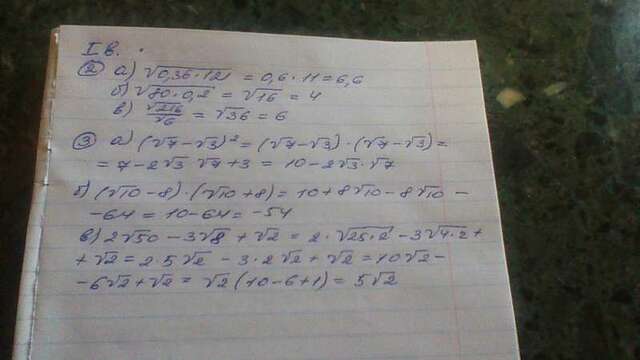 I в.
② а) √0,36·121 = 0,6·11 = 6,6
б) √80·0,2 = √16 = 4
в) √216/√6 = √36 = 6
③ а) (√7-√3)² = (√7-√3)·(√7-√3) =
= 7-2√3 √7+3 = 10-2√3·√7
б) (√10-8)·(√10+8) = 10+8√10-8√10-
-64 = 10-64 = -54
в) 2√50-3√8+√2 = 2·√25·2-3√4·2+
+√2 = 2·5√2-3·2√2+√2 = 10√2-
-6√2+√2 = √2(10-6+1) = 5√2